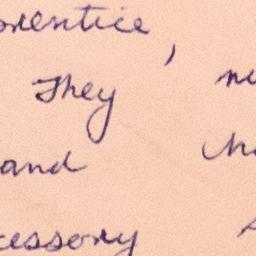 prentice,
They
and
cessory